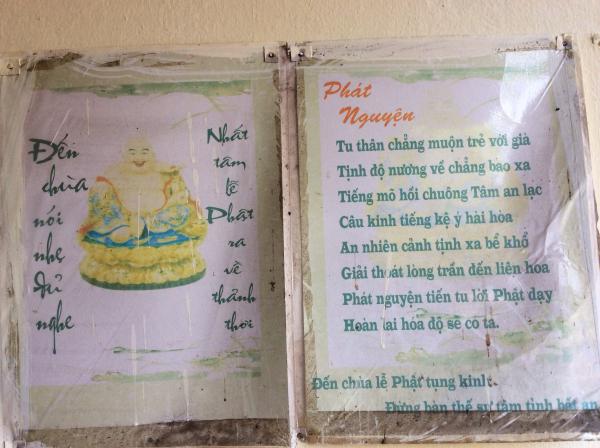 Đến
chùa
nói
nhẹ
đủ
nghe
Nhất
tâm
lễ
Phật
ra
về
thảnh
thơi
Phát
Nguyện
Tu thân chẳng muộn trẻ với già
Tịnh độ nương về chẳng bao xa
Tiếng mõ hồi chuông Tâm an lạc
Câu kinh tiếng kệ ý hài hòa
An nhiên cảnh tịnh xa bể khổ
Giải thoát lòng trần đến liên hoa
Phát nguyện tiến tu lời Phật dạy
Hoàn lai hóa độ sẽ có ta.
Đến chùa lễ Phật tụng kinh.
Đừng bàn thế sự tâm tình bất an